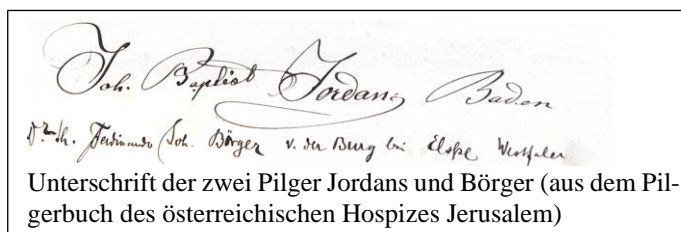 Joh. Baptist Jordans Baden
Dr. th. Ferdinando Joh. Börger v. der Burg bei Elspe Westfalen
Unterschrift der zwei Pilger Jordans und Börger (aus dem Pil-
gerbuch des österreichischen Hospizes Jerusalem)